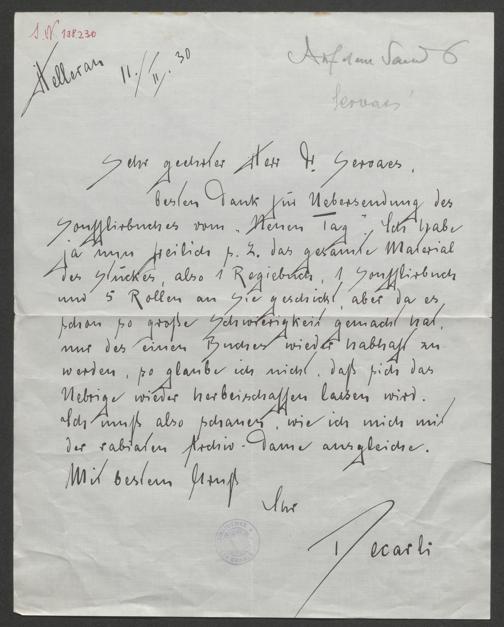 J. N. 138230
Auf dem Sand 6
Hellerau
11./II. 30
Servaes
Sehr geehrter Herr Dr. Servaes,
besten Dank für Uebersendung des
Soufflirbuches vom „Neuen Tag“. Ich habe
ja nun freilich s. Z. das gesamte Material
des Stückes, also 1 Regiebuch, 1 Soufflirbuch
und 5 Rollen an Sie geschickt, aber da es
schon so große Schwierigkeit gemacht hat,
nur des einen Buches wieder habhaft zu
werden, so glaube ich nicht, daß sich das
Uebrige wieder herbeischaffen lassen wird.
Ich muß also schauen, wie ich mich mit
der rabiaten Archiv-Dame ausgleiche.
Mit bestem Gruß
Ihr
Decarli